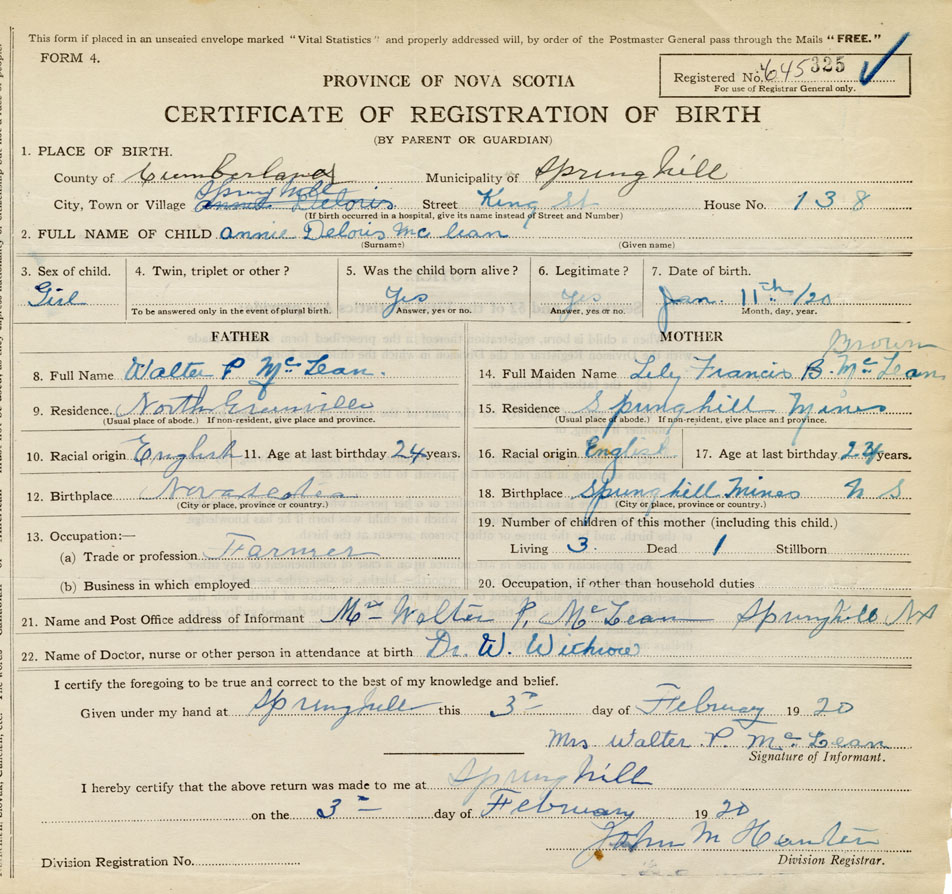 This form if placed in an unsealed envelope marked "Vital Statistics" and properly addressed will, by order of the Postmaster General pass through the Mails "FREE."
FORM 4.
Registered No. 645 325
For use of Registrar General only.
PROVINCE OF NOVA SCOTIA
CERTIFICATE OF REGISTRATION OF BIRTH
(BY PARENT OR GUARDIAN)
1. PLACE OF BIRTH.
County of Cumberland Municipality of Springhill
Spring hill
City, Town or Village Annie Deloris Street King St House No. 138
(If birth occurred in a hospital, give its name instead of Street and Number)
2. FULL NAME OF CHILD Annie Deloris Mc lean
(Surname) (Given name)
3. Sex of child. 4. Twin, triplet or other? 5. Was the child born alive? 6. Legitimate? 7. Date of birth.
Girl Yes Yes Jan. 11th/20
To be answered only in the event of plural birth. Answer, yes or no. Answer, yes or no. Month, day, year.
FATHER MOTHER
Brown
8. Full Name Walter P McLean. 14. Full Maiden Name Lily Francis B. McLean
9. Residence. North Granville 15. Residence Springhill Mines
(Usual place of abode.) If non-resident, give place and province. (Usual place of abode.) If non-resident, give place and province.
10. Racial origin English 11. Age at last birthday 24 years. 16. Racial origin English 17. Age at last birthday 24 years.
12. Birthplace Nova Scotia 18. Birthplace Springhill Mines N S
(City or place, province or country.) (City or place, province or country.)
13. Occupation:— 19. Number of children of this mother (including this child.)
(a) Trade or profession Farmer Living 3 Dead 1 Stillborn
(b) Business in which employed 20. Occupation, if other than household duties
21. Name and Post Office address of Informant Mrs Walter P. McLean Springhill NS
22. Name of Doctor, nurse or other person in attendance at birth Dr. W. Withrow
I certify the foregoing to be true and correct to the best of my knowledge and belief.
Given under my hand at Springhill this 3rd day of February 1920
Mrs Walter P. McLean
Signature of Informant.
I hereby certify that the above return was made to me at Springhill
on the 3rd day of February 1920
John M Hunter
Division Registration No. Division Registrar.